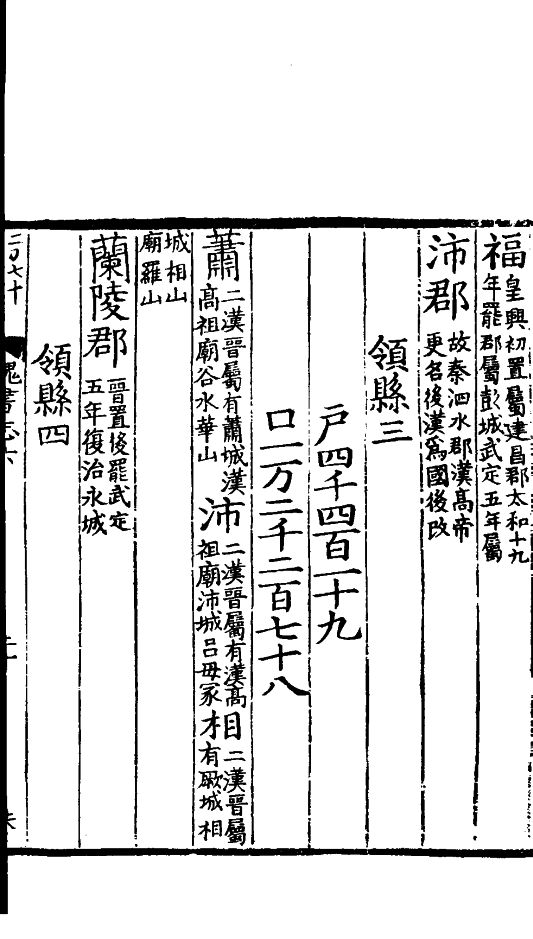 福皇興初置屬建昌郡太和十九
年罷郡屬彭城武定五年屬
沛郡故秦泗水郡漢高帝
更名後漢爲國後改
領縣三
戶四千四百一十九
口一万二千二百七十八
蕭二漢晉屬有蕭城漢
高祖廟谷水華山
沛二漢晉屬有漢高
祖廟沛城吕母冢
相二漢晉屬
有厥城相
城相山
廟羅山
蘭陵郡晉置後罷武定
五年復治永城
領縣四
二万七十
魏書志六